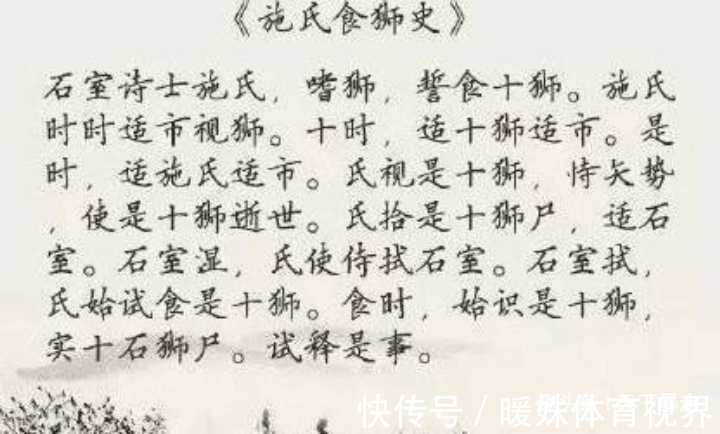 《施氏食狮史》
石室诗士施氏，嗜狮，誓食十狮。施氏
时时适市视狮。十时，适十狮适市。是
时，适施氏适市。氏视是十狮，恃矢势
，使是十狮逝世。氏拾是十狮尸，适石
室。石室湿，氏使侍拭石室。石室拭，
氏始试食是十狮。食时，始识是十狮，
实十石狮尸。试释是事。
快传号 / 暖妹体育视界